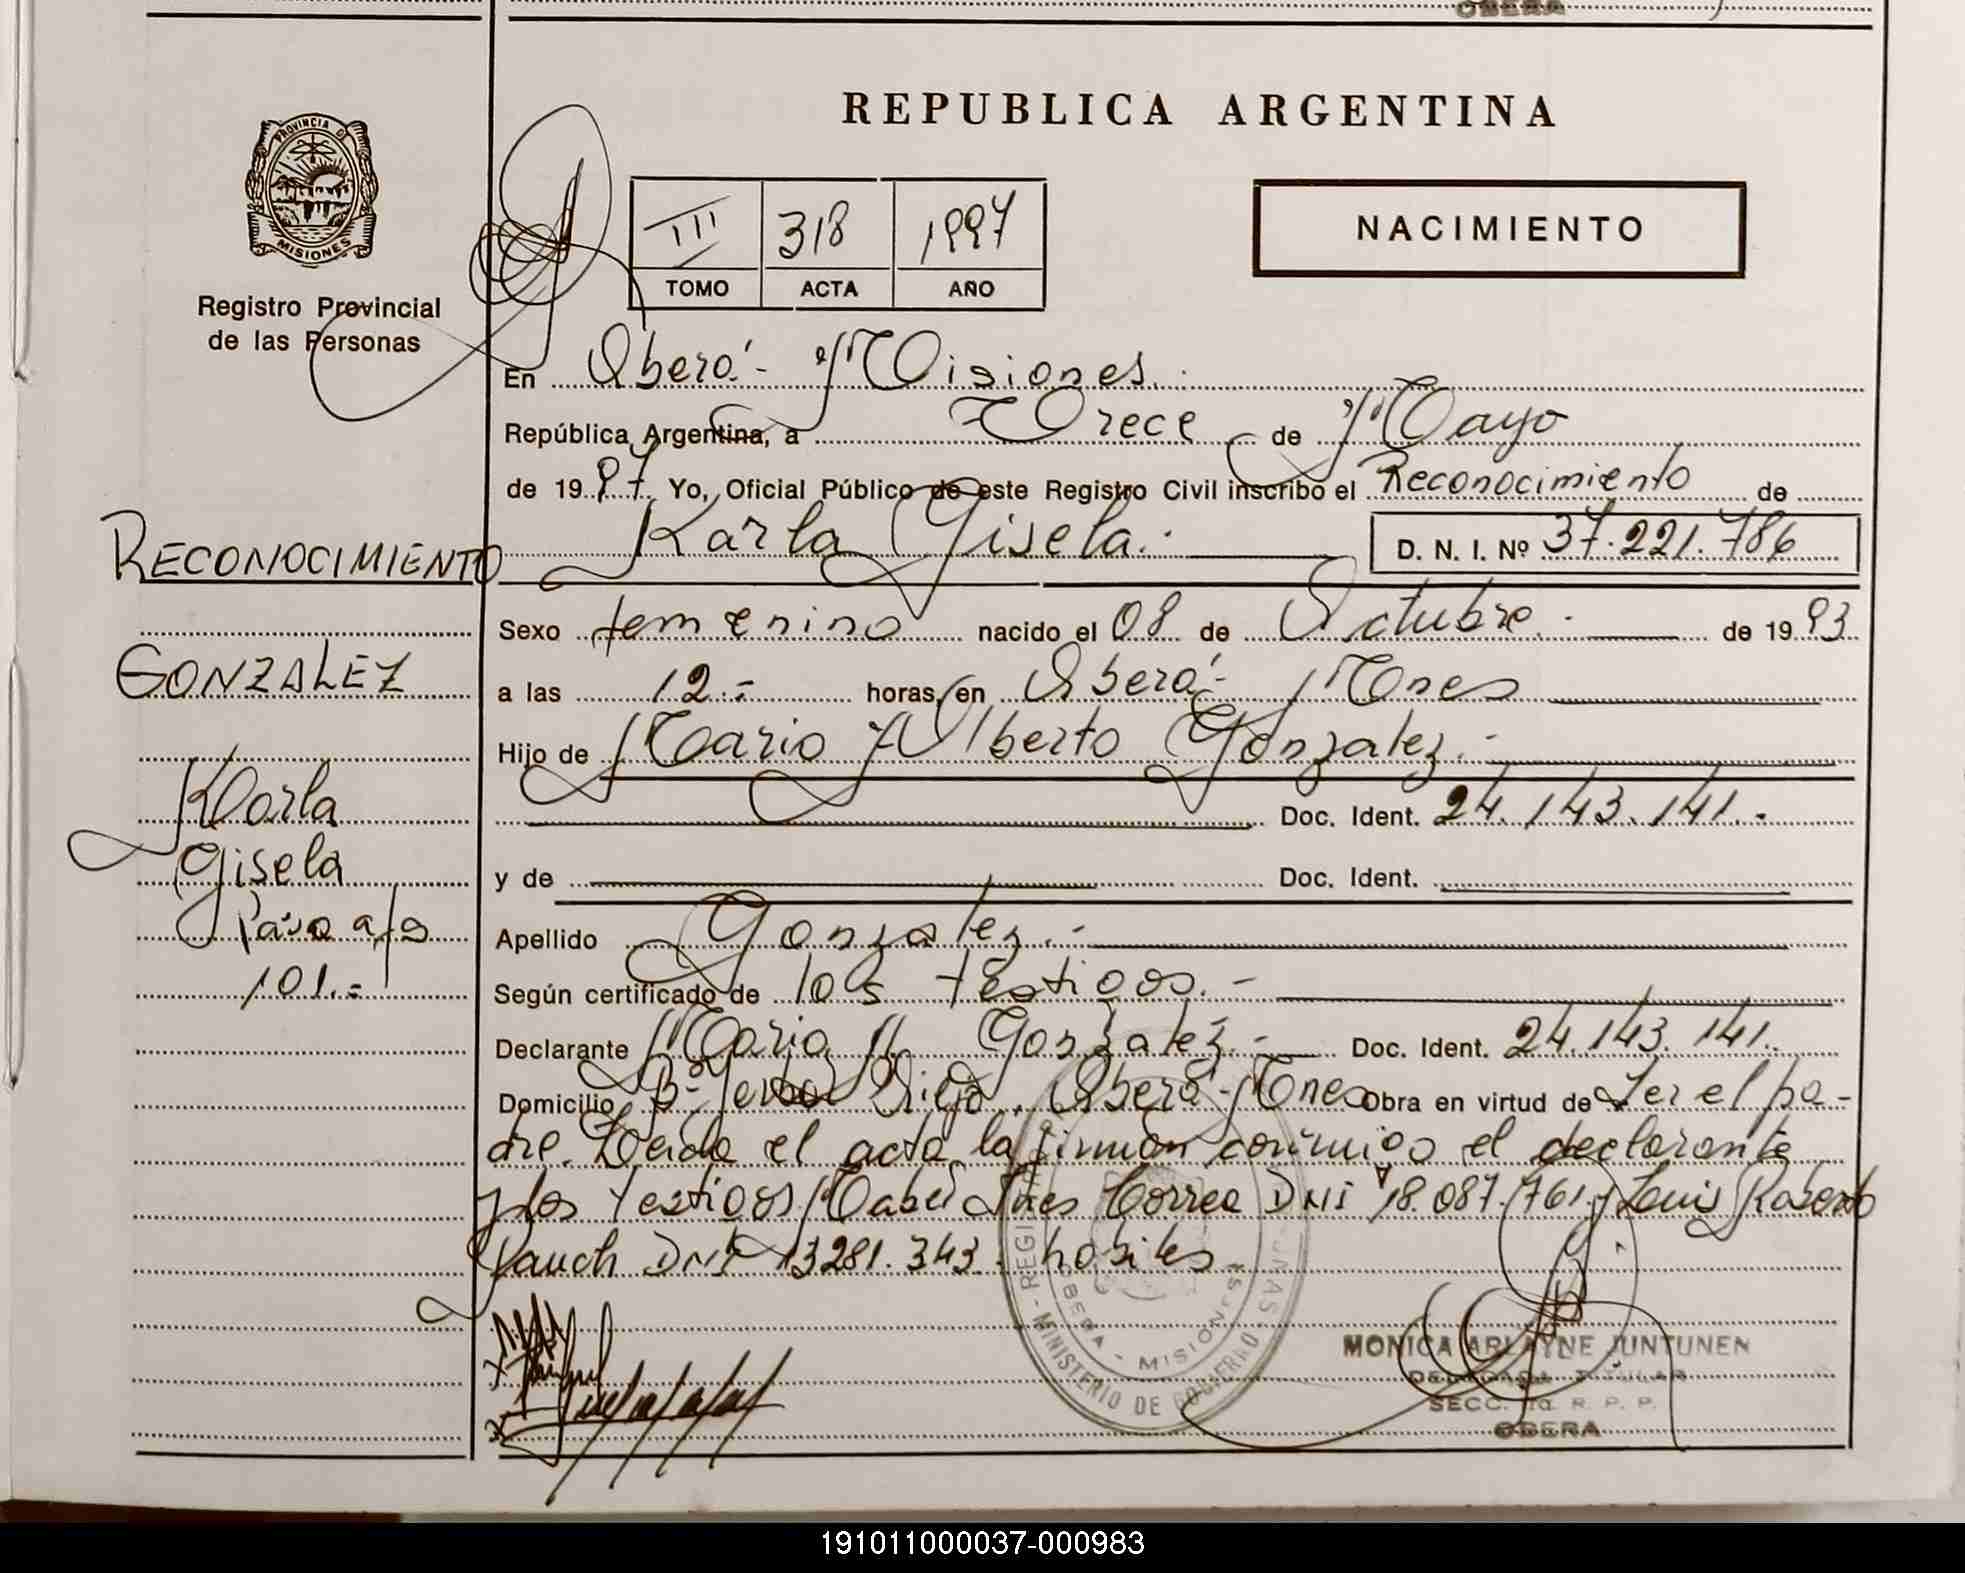 OBERA
REPUBLICA ARGENTINA
PROVINCIA D
MISIONES
Registro Provincial
de las Personas
III 318 1997
TOMO ACTA AÑO
NACIMIENTO
En Oberá.- Misiones.
República Argentina, a Trece de Mayo
de 19 97. Yo, Oficial Público de este Registro Civil inscribo el Reconocimiento de
Karla Gisela.- D. N. I. Nº 37.221.786
RECONOCIMIENTO
Sexo femenino nacido el 08 de Octubre.- de 19 93
GONZALEZ
a las 12.- horas, en Oberá- Mnes
Hijo de Mario Alberto Gonzalez.-
Doc. Ident. 24.143.141.-
Karla
Gisela
y de Doc. Ident.
Pasa a fs
101.=
Apellido Gonzalez.-
Según certificado de los testigos.-
Declarante Mario A. Gonzalez.- Doc. Ident. 24.143.141.
Domicilio Bº Yerbal Viejo, Oberá- Mnes Obra en virtud de Ser el pa-
dre. Leída el acta la firman conmigo el declarante
y los testigos Mabel Ines Correa DNI 18.087.761 y Luis Roberto
Rauch DNI 13281.343. hábiles.
MINISTERIO DE GOBIERNO
OBERA - MISIONES
MONICA ARLAYNE JUNTUNEN
DELEGADA TITULAR
SECC. 1a. R. P. P.
OBERA
191011000037-000983